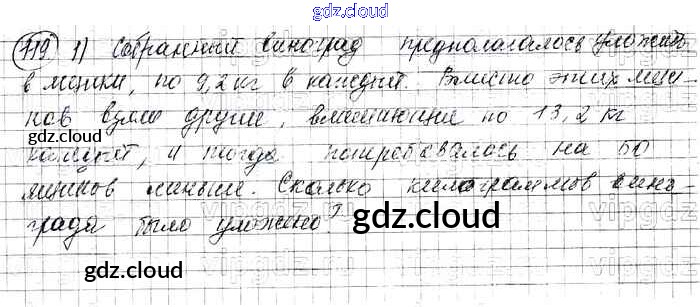 gdz.cloud
719 1) Собранный виноград предполагалось уложить
в ящики, по 9,2 кг в каждый. Вместо этих ящи-
ков взяли другие, вмещающие по 13,2 кг
gdz.cloud gdz.cloud
каждый, и тогда потребовалось на 50
ящиков меньше. Сколько килограммов вино-
града было уложено?
gdz.cloud
gdz.cloud